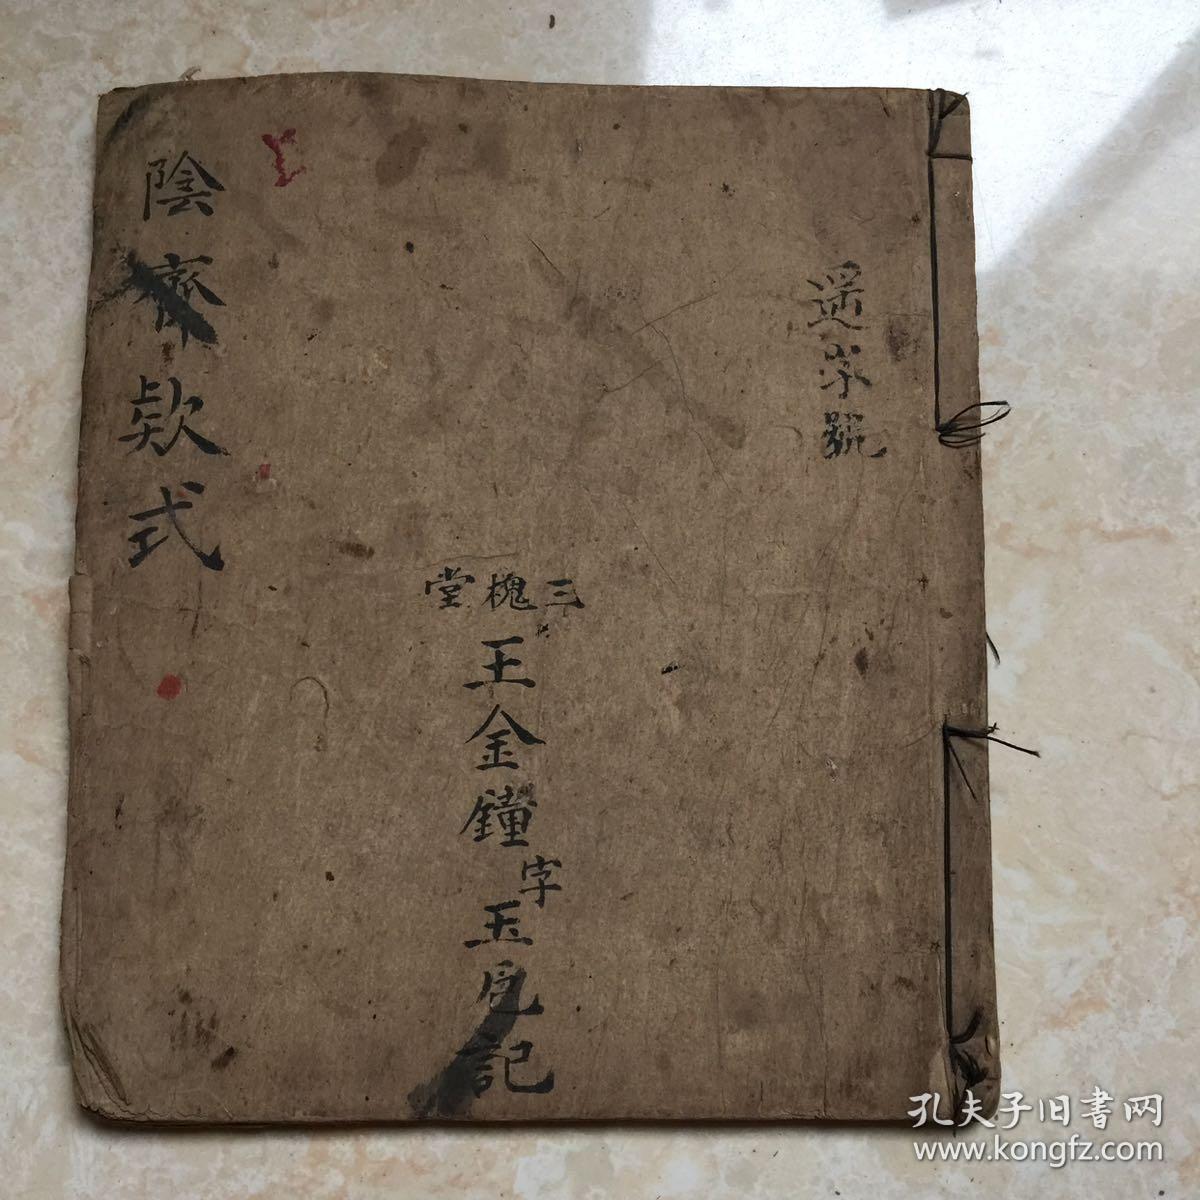 遥字號
三槐堂
王金鐘字玉
記
陰齋欵式
孔夫子旧書网
www.kongfz.com